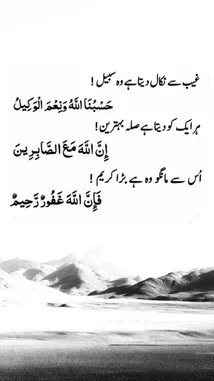 غیب سے نکال دیتا ہے وہ سبیل !
حَسْبُنَا اللَّهُ وَنِعْمَ الْوَكِيلُ
ہر ایک کو دیتا ہے صلہ بہترین!
إِنَّ اللَّهَ مَعَ الصَّابِرِينَ
اُس سے مانگو وہ ہے بڑا کریم !
فَإِنَّ اللَّهَ غَفُورٌ رَّحِيمٌ